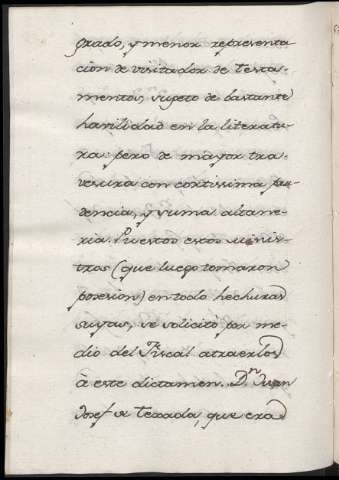 grado, y menor representa
cion de visitador de testa-
mentos, sugeto de bastante
havilidad en la literatu-
ra: pero de mayor tra-
vesura con cortissima pru-
dencia, y suma altane-
ria. Puestos estos minis-
tros (que luego tomaron
posesion) en todo hechuras
suyas, se solicitó por me-
dio del Fiscal atraerlos
à este dictamen. D.ⁿ Juan
Josef de Texada, que era